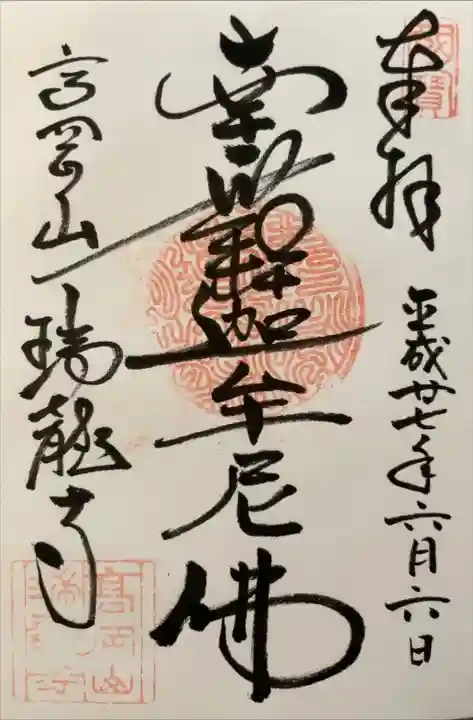 奉拝
平成廿七年六月六日
南無釋迦牟尼佛
高岡山
瑞龍寺
高岡山
瑞龍寺